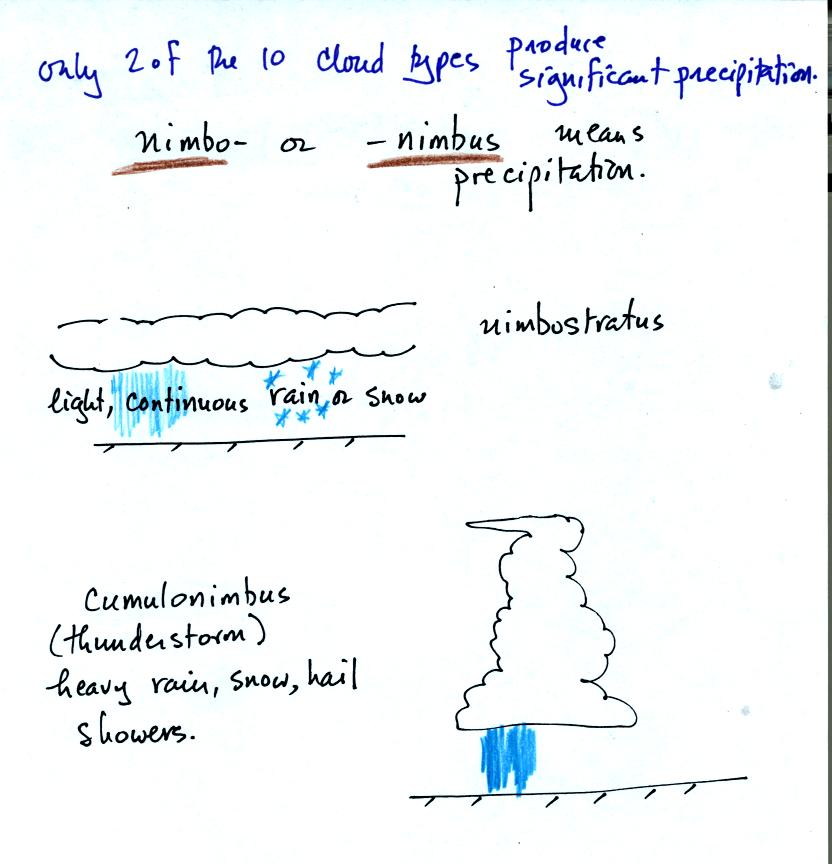 only 2 of the 10 cloud types produce
significant precipitation.
nimbo- or -nimbus means
precipitation.
nimbostratus
light, continuous rain or snow
Cumulonimbus
(thunderstorm)
heavy rain, snow, hail
showers.